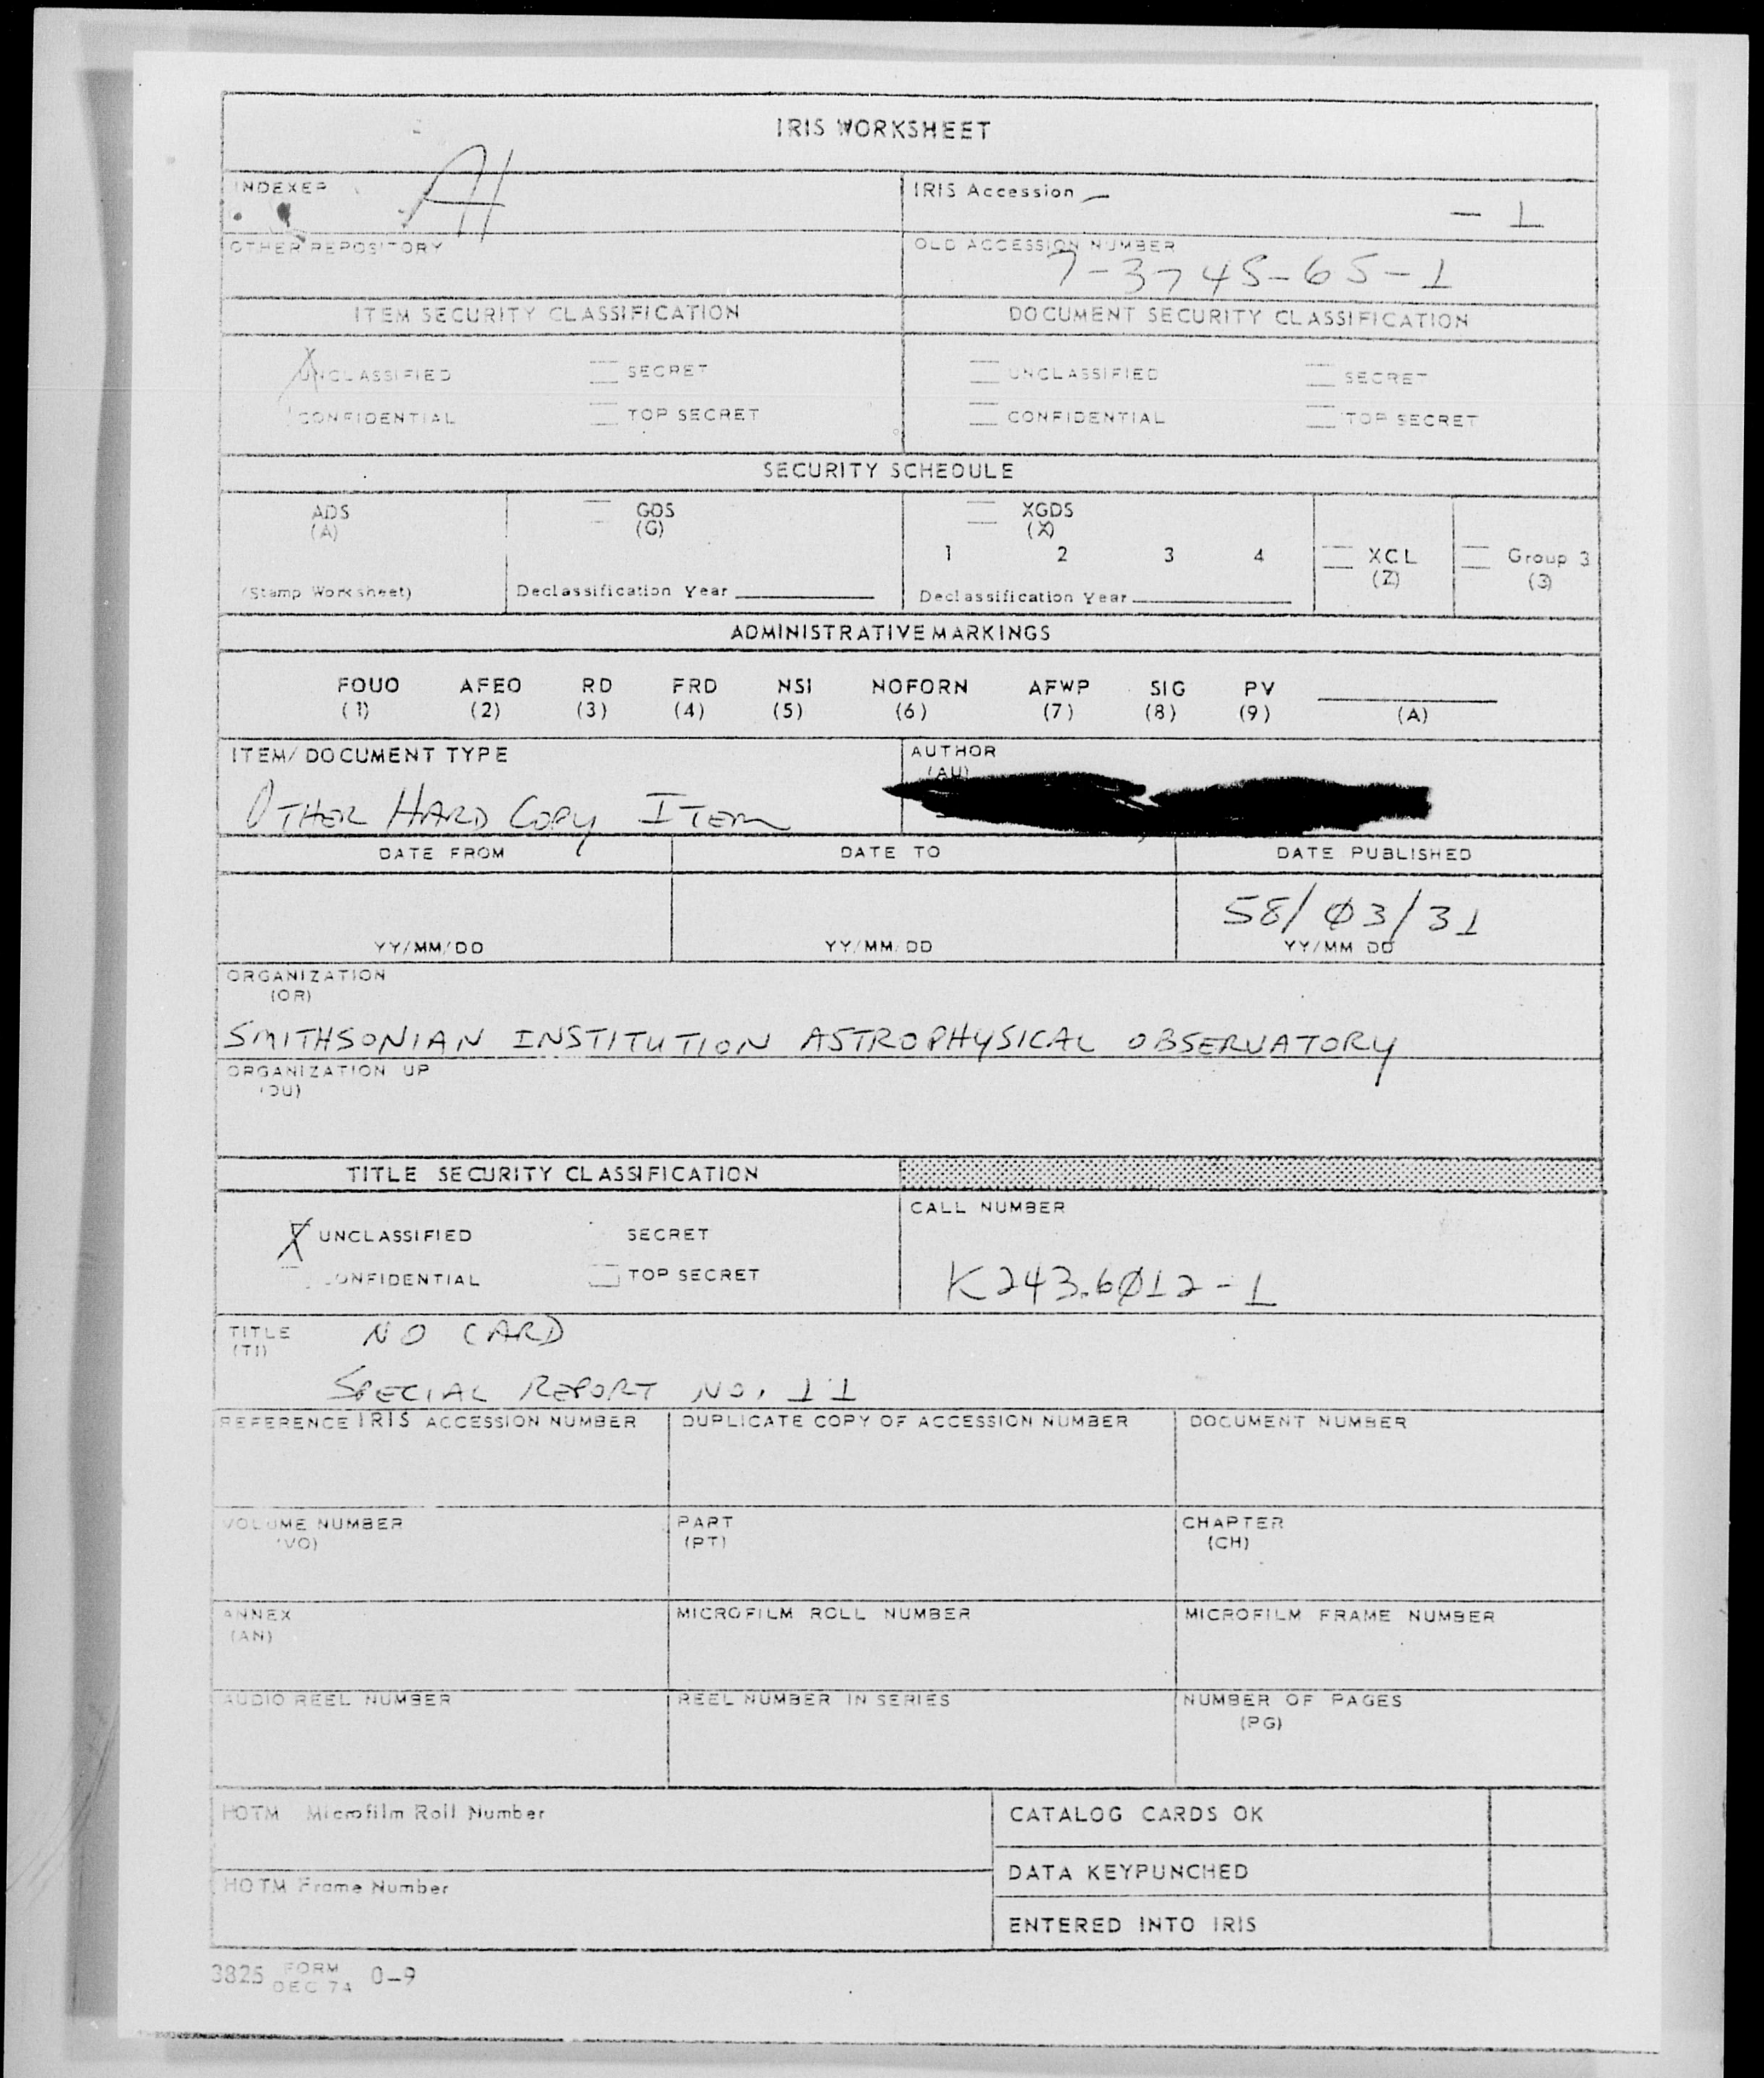 IRIS WORKSHEET
INDEXER AH
IRIS Accession – – 1
OTHER REPOSITORY
OLD ACCESSION NUMBER
7-3745-65-1
ITEM SECURITY CLASSIFICATION DOCUMENT SECURITY CLASSIFICATION
X UNCLASSIFIED SECRET UNCLASSIFIED SECRET
CONFIDENTIAL TOP SECRET CONFIDENTIAL TOP SECRET
SECURITY SCHEDULE
ADS GDS XGDS
(A) (G) (X)
1 2 3 4 XCL Group 3
(Z) (3)
(Stamp Worksheet) Declassification Year Declassification Year
ADMINISTRATIVE MARKINGS
FOUO AFEO RD FRD NSI NOFORN AFWP SIG PV
(1) (2) (3) (4) (5) (6) (7) (8) (9) (A)
ITEM/DOCUMENT TYPE AUTHOR
(AU)
OTHER HARD COPY ITEM
DATE FROM DATE TO DATE PUBLISHED
58/03/31
YY/MM/DD YY/MM/DD YY/MM DD
ORGANIZATION
(OR)
SMITHSONIAN INSTITUTION ASTROPHYSICAL OBSERVATORY
ORGANIZATION UP
(OU)
TITLE SECURITY CLASSIFICATION
CALL NUMBER
X UNCLASSIFIED SECRET
CONFIDENTIAL TOP SECRET
K243.6012-1
TITLE NO CARD
(TI)
SPECIAL REPORT NO. 11
REFERENCE IRIS ACCESSION NUMBER DUPLICATE COPY OF ACCESSION NUMBER DOCUMENT NUMBER
VOLUME NUMBER PART CHAPTER
(VO) (PT) (CH)
ANNEX MICROFILM ROLL NUMBER MICROFILM FRAME NUMBER
(AN)
AUDIO REEL NUMBER REEL NUMBER IN SERIES NUMBER OF PAGES
(PG)
HOTM Microfilm Roll Number CATALOG CARDS OK
DATA KEYPUNCHED
HOTM Frame Number
ENTERED INTO IRIS
3825 FORM DEC 74 0-9